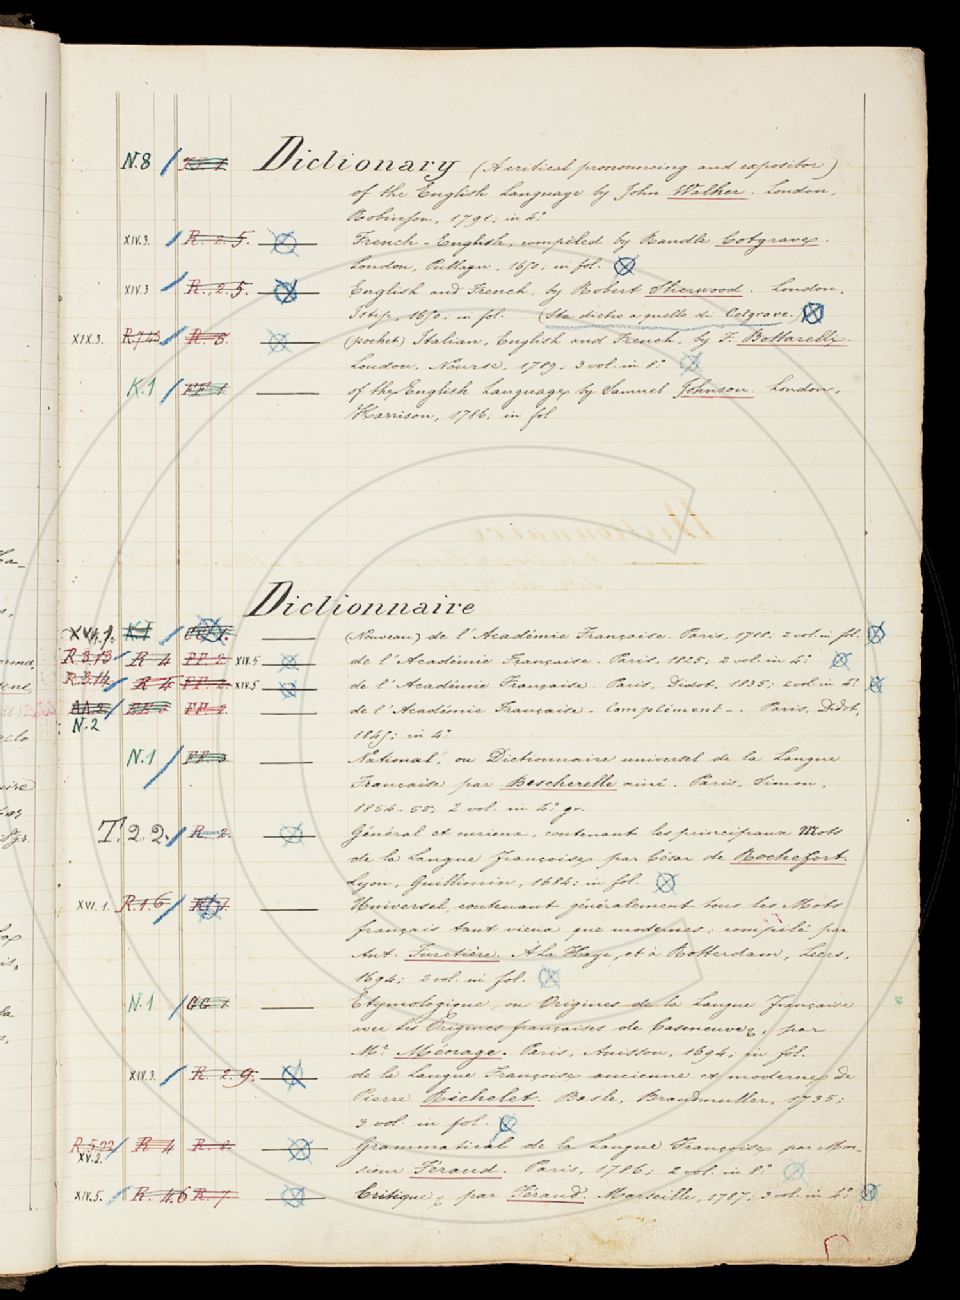 N.8 / Dictionary (A critical pronouncing and expositor)
of the English Language by John Walker. London,
Robinson, 1791; in 4°
XIV.3. / R. 2. 5. — French-English, compiled by Randle Cotgrave.
London, 1650; in fol.
XIV.3 / R. 2. 5. — English and French, by Robert Sherwood. London,
1650; in fol. (Sta dietro a quello di Cotgrave.)
XIX.3. R. 8. — (pocket) Italian, English and French, by F. Bottarelli.
London, Nourse, 1789; 3 vol. in 8°
K.1 / FF 1 — of the English Language by Samuel Johnson. London,
Harrison, 1786; in fol
Dictionnaire
XVI.1. K.1 / — (Nouveau) de l'Académie Française. Paris, 1718; 2 vol. in fol.
R 3.13 R 4 FF. 2. XIV.5 — de l'Académie Française. Paris, 1825; 2 vol. in 4°
R 3.14 R 4 FF. 2. XIV.5 — de l'Académie Française. Paris, Didot, 1835; 2 vol. in 4°
FF. 2. — de l'Académie Française. Complément. Paris, Didot,
N.2 1845; in 4°
N.1 / FF 3 — National, ou Dictionnaire universel de la Langue
Française par Bescherelle ainé. Paris, Simon,
1854-55; 2 vol. in 4° gr.
T.22. / R. 2. — Général et curieux, contenant les principaux Mots
de la Langue Françoise par César de Rochefort.
Lyon, Guillimin, 1684; in fol.
XVI.1. R.1.6 / — Universel, contenant généralement tous les Mots
français tant vieux que modernes; compilé par
Ant. Furetière. À La Haye, et à Rotterdam, Leers,
1694; 2 vol. in fol.
N.1 / GG. 1. — Etymologique, ou Origines de la Langue Françoise
avec les Origines françaises de Caseneuve, par
Mr. Ménage. Paris, Anisson, 1694; in fol.
XIV.3. / R. 2. 9. — de la Langue Françoise ancienne et moderne de
Pierre Richelet. Basle, Brandmuller, 1735;
3 vol. in fol.
R.5.22 / R 4 R. 8. — Grammatical de la Langue Françoise par Mon-
XV.2. sieur Feraud. Paris, 1786; 2 vol. in 8°
XIV.5. / R. 4.6 R. 7 — Critique, par Feraud. Marseille, 1787, 3 vol. in 4°